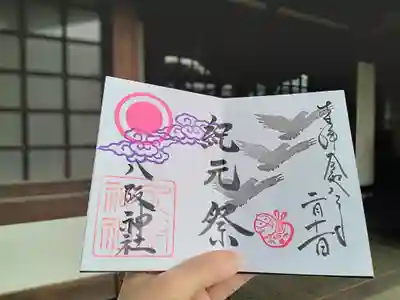 奉拝 令和 年
二月十一日
紀元祭
八阪神社